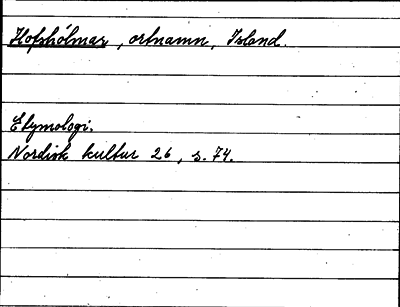 Hofshólmar, ortnamn, Island.
Etymologi.
Nordisk kultur 26, s. 74.